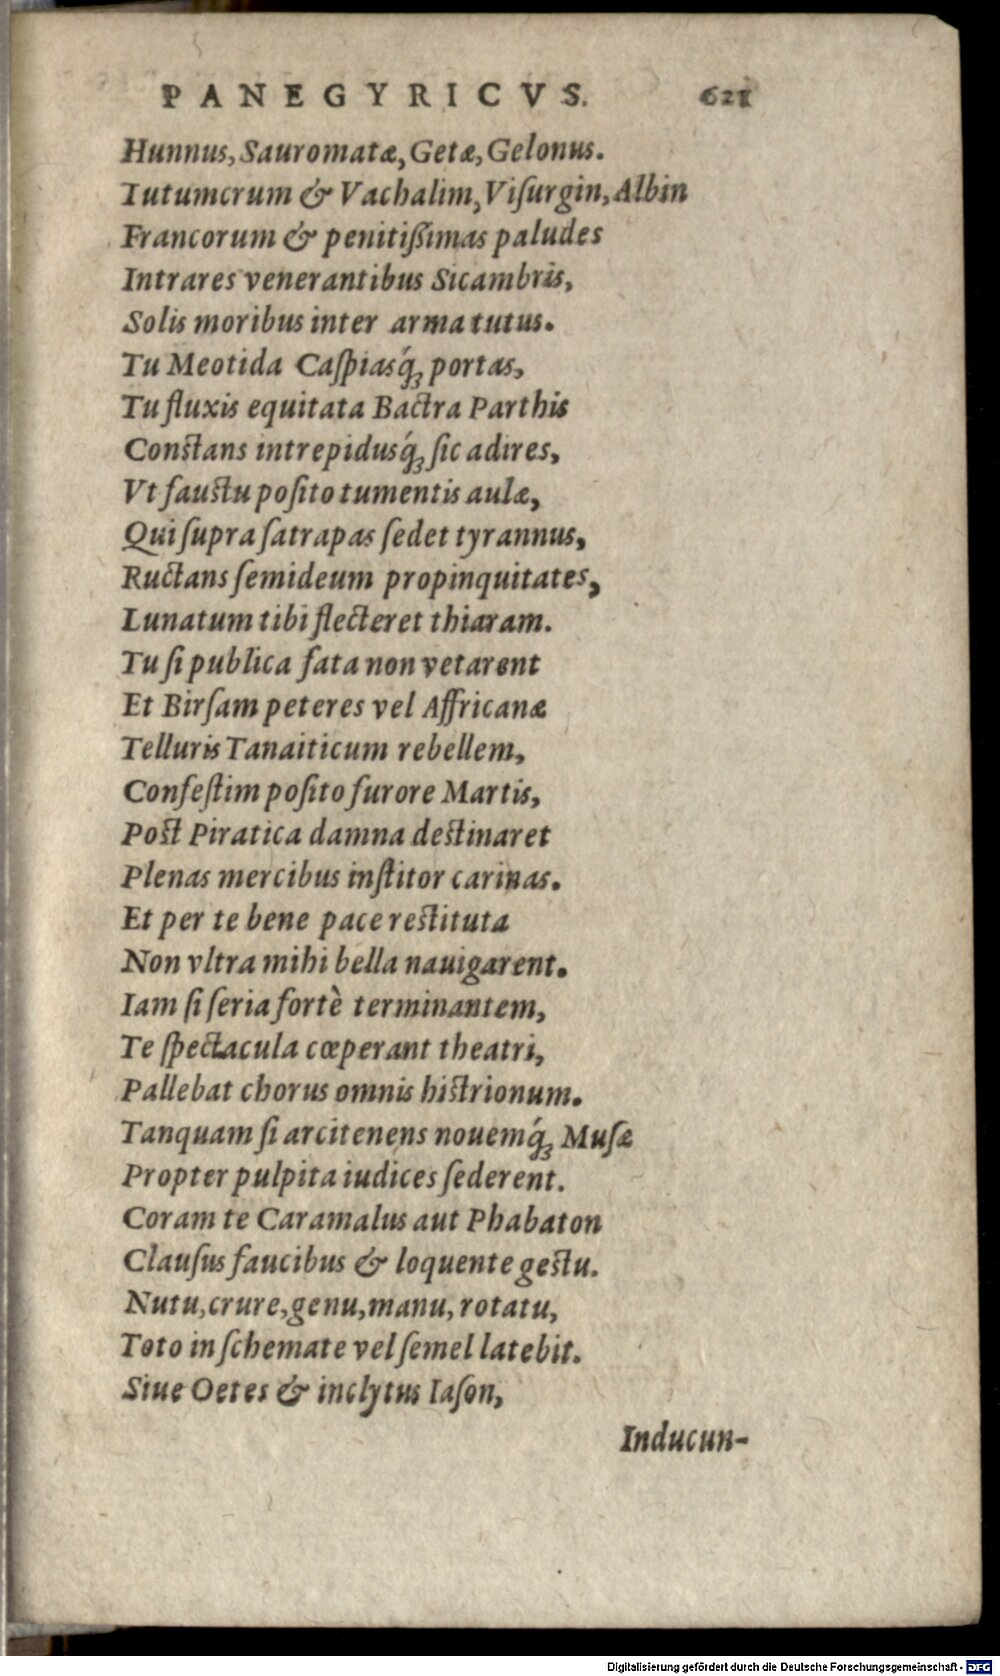 PANEGYRICVS. 621
Hunnus, Sauromatæ, Getæ, Gelonus.
Tutumcrum & Vachalim, Viſurgin, Albin
Francorum & penitiſsimas paludes
Intrares venerantibus Sicambris,
Solis moribus inter arma tutus.
Tu Meotida Caſpiasq́; portas,
Tu fluxis equitata Bactra Parthis
Constans intrepidusq́; ſic adires,
Vt faustu poſito tumentis aulæ,
Qui ſupra ſatrapas ſedet tyrannus,
Ructans ſemideum propinquitates,
Lunatum tibi flecteret thiaram.
Tu ſi publica fata non vetarent
Et Birſam peteres vel Affricanæ
Telluris Tanaiticum rebellem,
Confeſtim poſito furore Martis,
Post Piratica damna destinaret
Plenas mercibus inſtitor carinas.
Et per te bene pace restituta
Non vltra mihi bella nauigarent.
Iam ſi ſeria fortè terminantem,
Te ſpectacula cœperant theatri,
Pallebat chorus omnis histrionum.
Tanquam ſi arcitenens nouemq́; Muſæ
Propter pulpita iudices ſederent.
Coram te Caramalus aut Phabaton
Clauſus faucibus & loquente gestu.
Nutu, crure, genu, manu, rotatu,
Toto in ſchemate vel ſemel latebit.
Siue Oetes & inclytus Iaſon,
Inducun-
Digitalisierung gefördert durch die Deutsche Forschungsgemeinschaft - DFG